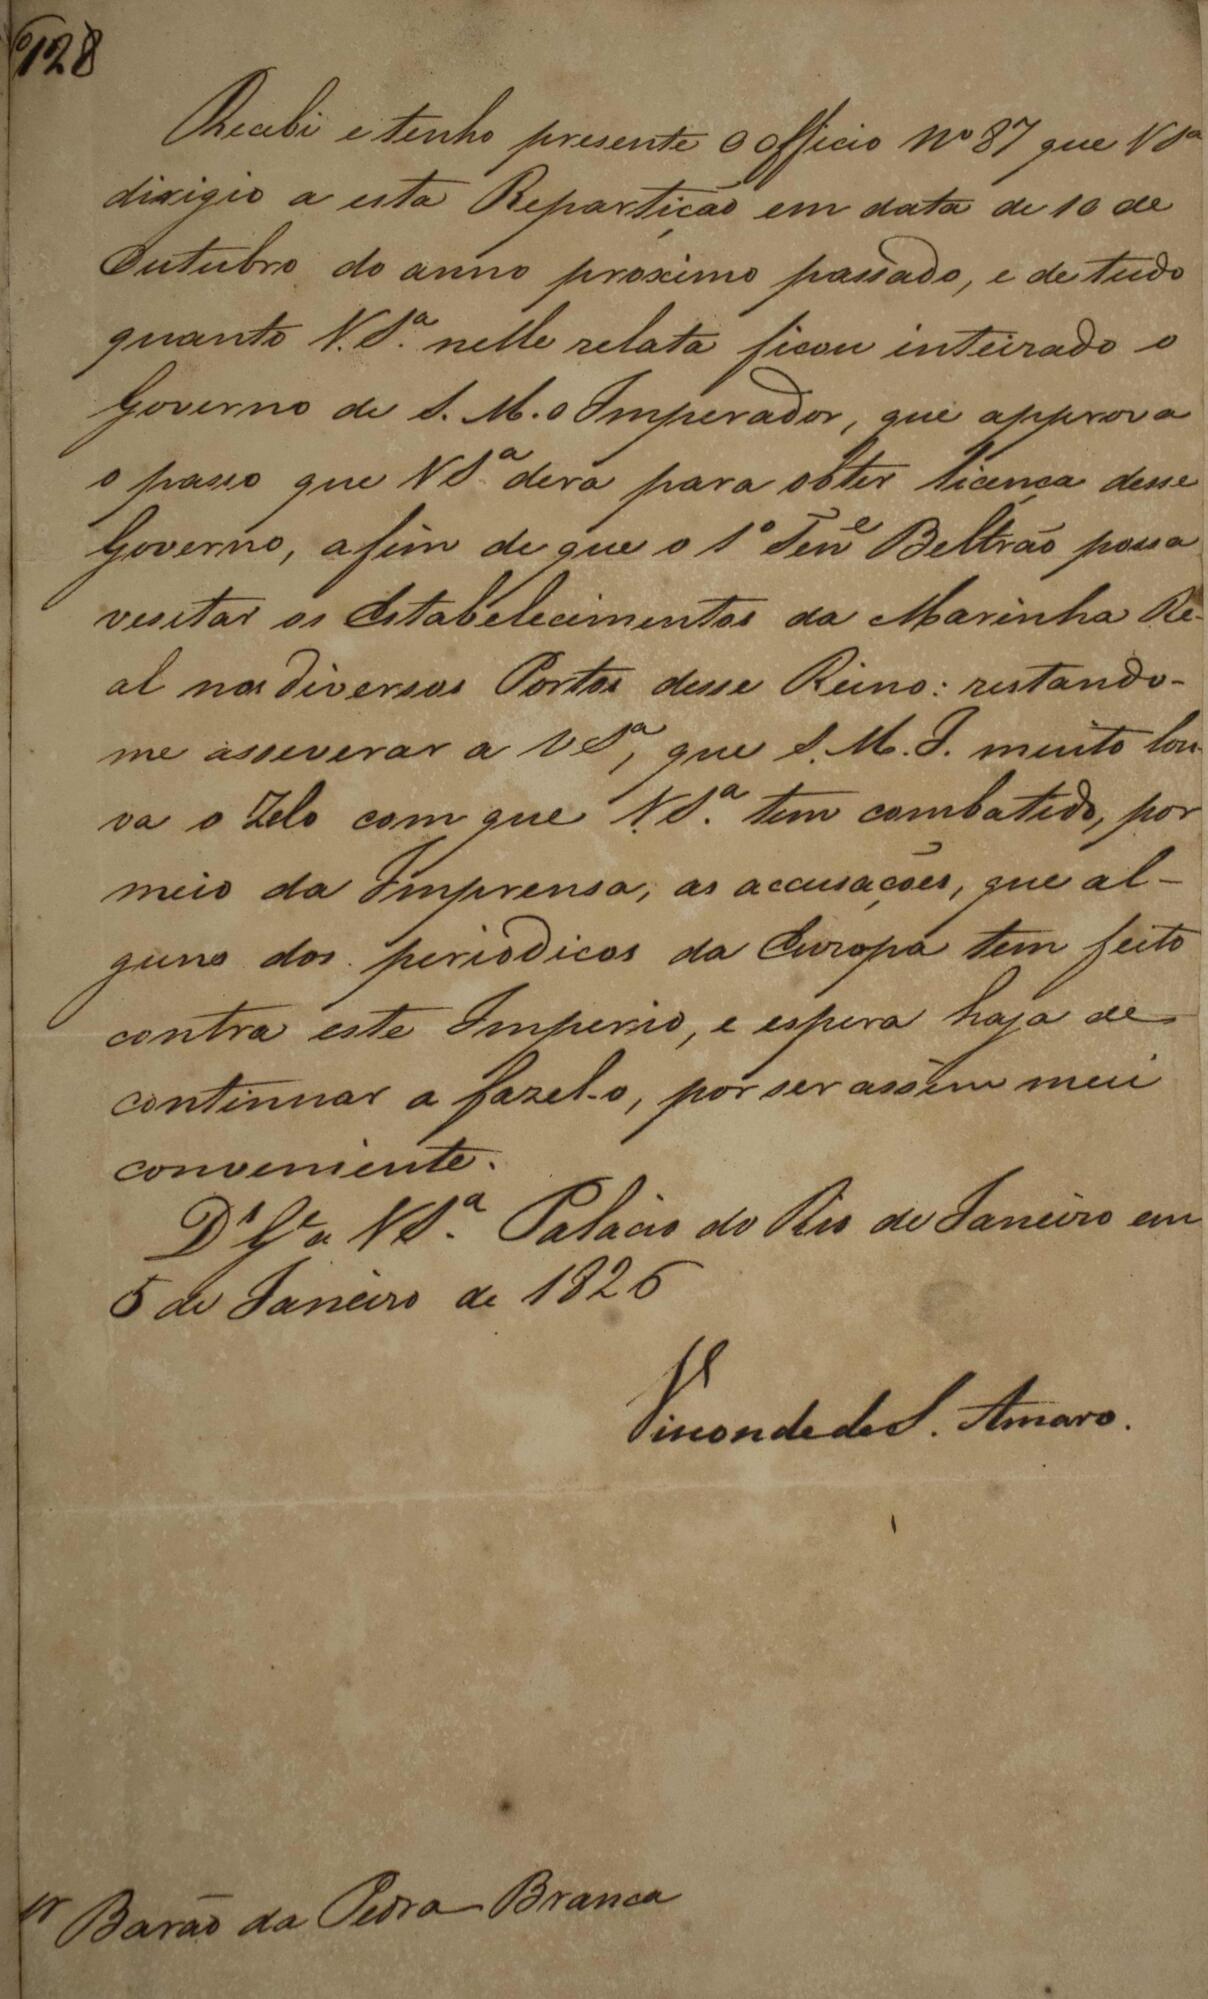 128
Recebi e tenho presente o officio Nº 87 que V Sª
dirigio a esta Repartição em data de 10 de
Outubro do anno proximo passado, e de tudo
quanto V. Sª. nelle relata ficou inteirado o
Governo de S. M. o Imperador, que approva
o passo que V Sª dera para obter licença desse
Governo, afim de que o 1º Tenᵉ Beltrão possa
vesitar os Estabelecimentos da Marinha Re-
al nos diversos Portos desse Reino: restando-
me asseverar a V Sª, que S. M. I. muito lou-
va o Zelo com que V. Sª. tem combatido, por
meio da Imprensa, as accusações, que al-
guns dos periodicos da Europa tem feito
contra este Imperio, e espera haja de
continuar a fazel-o, por ser assim mui
conveniente.
Dˢ Gᵉ a V Sª. Palacio do Rio de Janeiro em
5 de Janeiro de 1826
Visconde de S. Amaro.
Barão da Pedra Branca